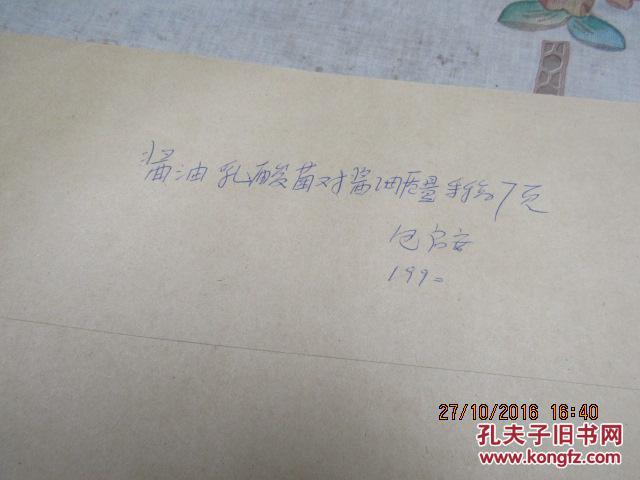 酱油乳酸菌对酱油质量手稿7页
包启安
199
27/10/2016 16:40
孔夫子旧书网
www.kongfz.com